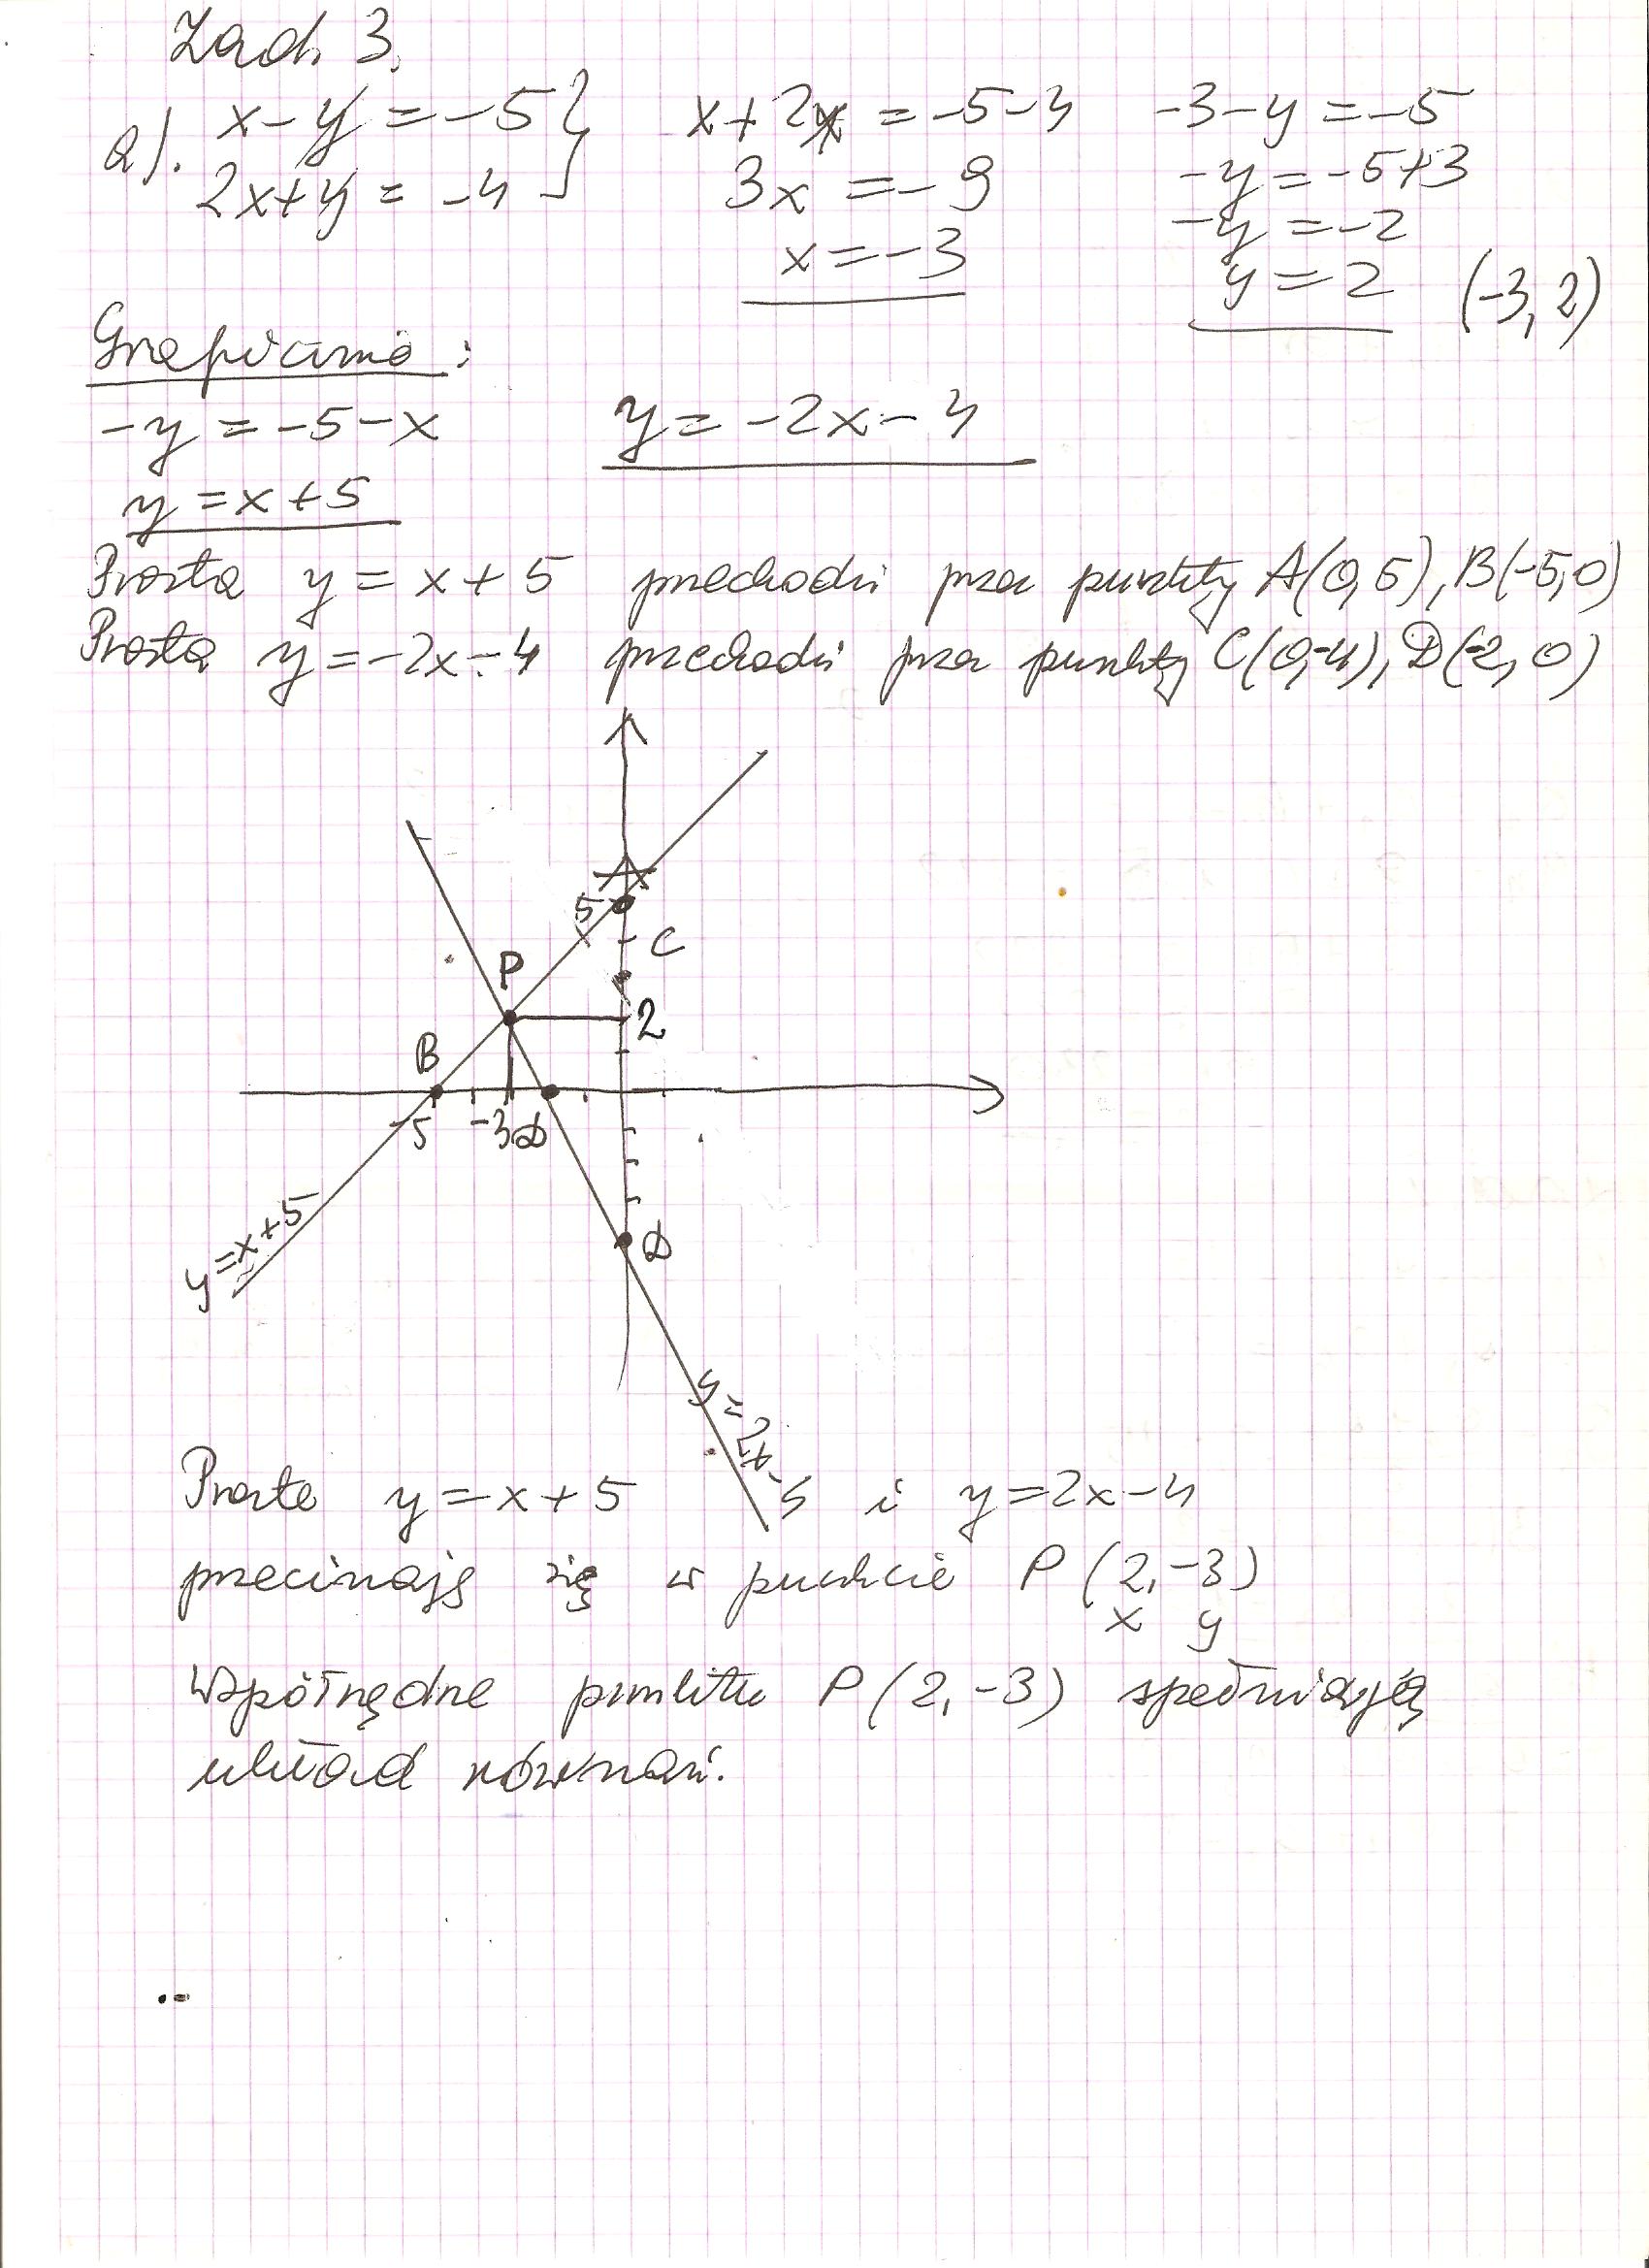 Zad. 3.
a). x-y=-5 } x+2x=-5-4 -3-y=-5
2x+y=-4 3x=-9 -y=-5+3
x=-3 -y=-2
y=2 (-3, 2)
Graficznie:
-y=-5-x y=-2x-4
y=x+5
Prosta y=x+5 przechodzi przez punkty A(0,5), B(-5,0)
Prosta y=-2x-4 przechodzi przez punkty C(0,-4), D(-2, 0)
A
5
C
P
2
B
-5 -3 D
y=x+5
D
y=2x-4
Proste y=x+5 i y=2x-4
przecinają się w punkcie P(2,-3)
x y
Współrzędne punktu P(2,-3) spełniają
układ równań.